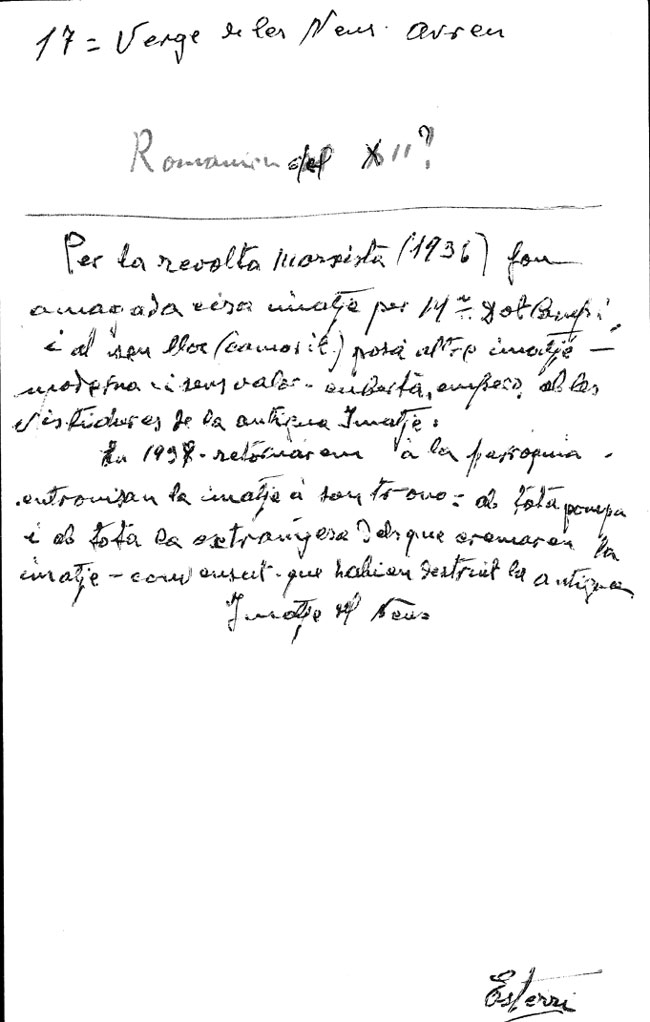 17 = Verge de les Neus. Avreu
Romanica del XII?
Per la revolta Marxista (1936) fou
amagada eixa imatje per Mª Dot
i al seu lloc (camaril) posá altre imatje –
moderna i sens valor – cuberta, empero, ab les
vistidures de la antigua Imatje.
En 1938 – retornarem á la parroquia –
entronisan la imatje á son trono = ab tota pompa
i ab tota la extrañesa dels que cremaren la
imatje – que habien destruit la antigua
Imatje de Neus
Esterri